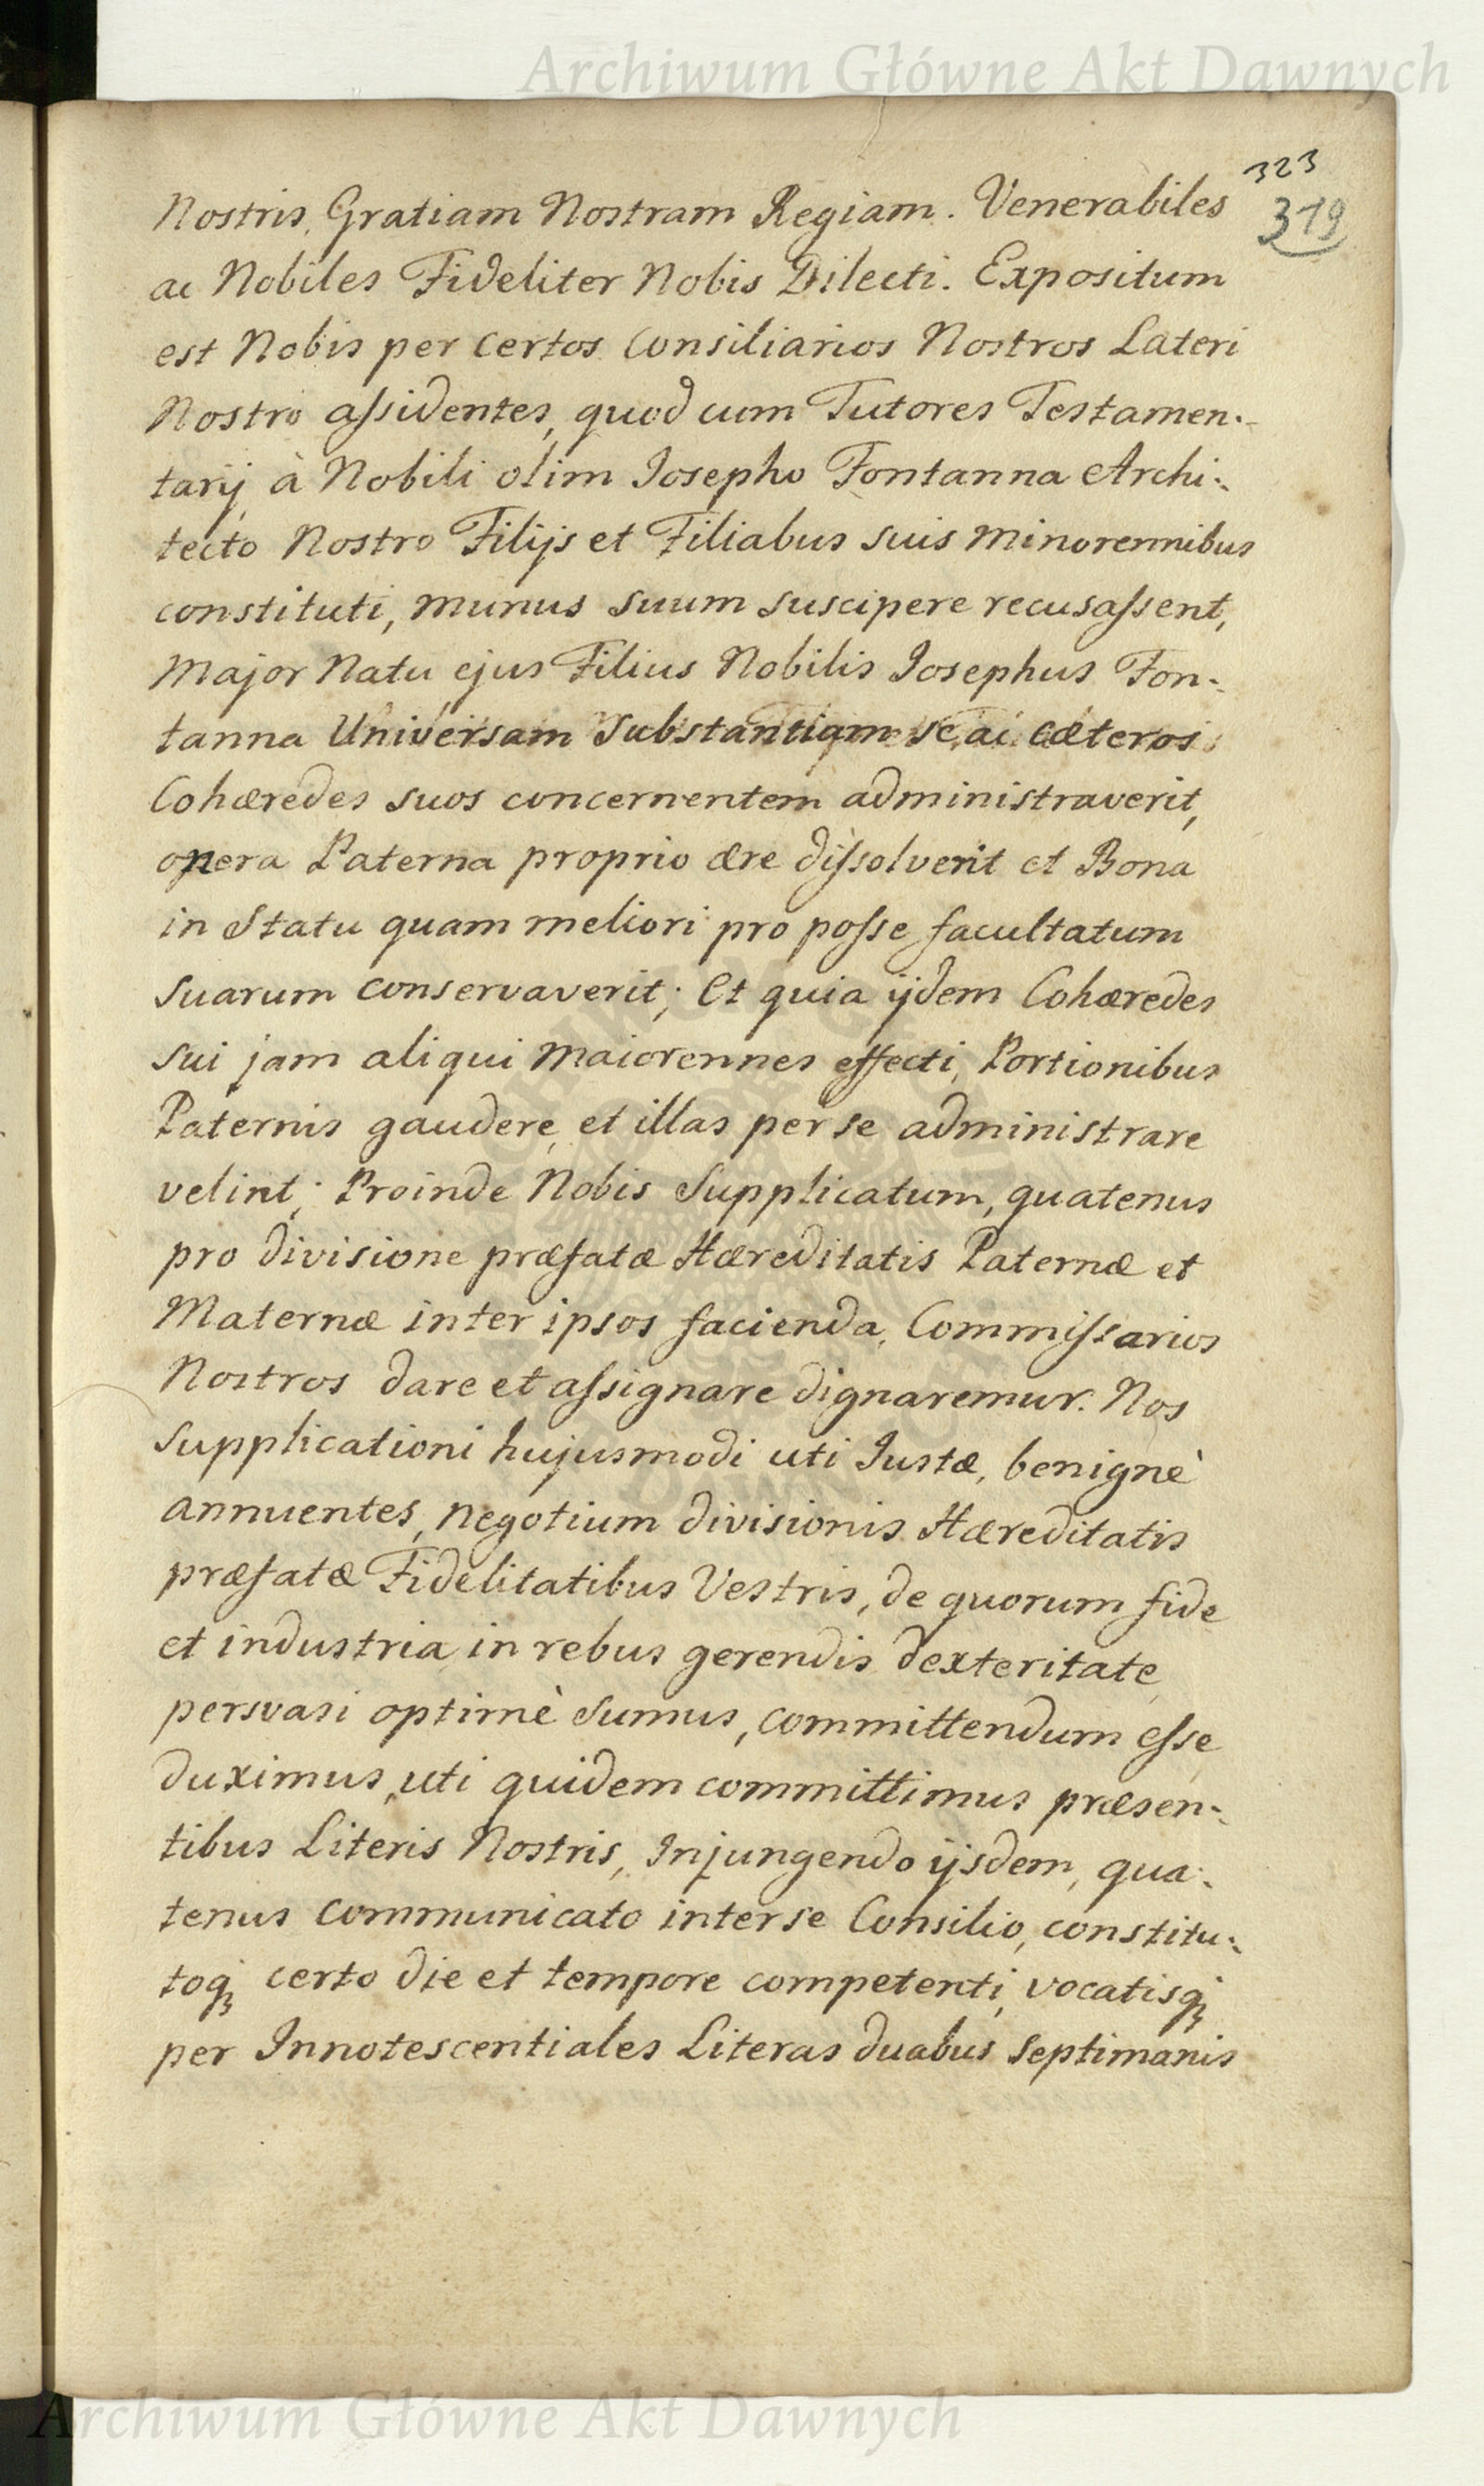 Archiwum Główne Akt Dawnych
323
319
Nostris, Gratiam Nostram Regiam. Venerabiles
ac Nobiles Fideliter Nobis Dilecti. Expositum
est Nobis per certos Consiliarios Nostros Lateri
Nostro assidentes, quod cum Tutores Testamen-
tarij à Nobili olim Josepho Fontanna Archi-
tecto Nostro Filijs et Filiabus suis minorennibus
constituti, munus suum suscipere recusassent,
Major Natu ejus Filius Nobilis Josephus Fon-
tanna Universam Substantiam se ac cæteros
Cohæredes suos concernentem administraverit,
opera Paterna proprio ære dissolverit et Bona
in Statu quam meliori pro posse facultatum
suarum conservaverit; Et quia ijdem Cohæredes
sui jam aliqui maiorennes effecti, Portionibus
Paternis gaudere, et illas per se administrare
velint; Proinde Nobis Supplicatum, quatenus
pro divisione præfatæ Hæreditatis Paternæ et
Maternæ inter ipsos facienda, Commissarios
Nostros dare et assignare dignaremur. Nos
Supplicationi hujusmodi uti Justæ, benignè
annuentes, negotium divisionis Hæreditatis
præfatæ Fidelitatibus Vestris, de quorum fide
et industria, in rebus gerendis dexteritate,
persvasi optimè sumus, committendum esse
duximus, uti quidem committimus præsen-
tibus Literis Nostris, Injungendo ijsdem, qua-
tenus communicato inter se Consilio, constitu-
toq; certo die et tempore competenti, vocatisq;
per Innotescentiales Literas duabus septimanis
Archiwum Główne Akt Dawnych